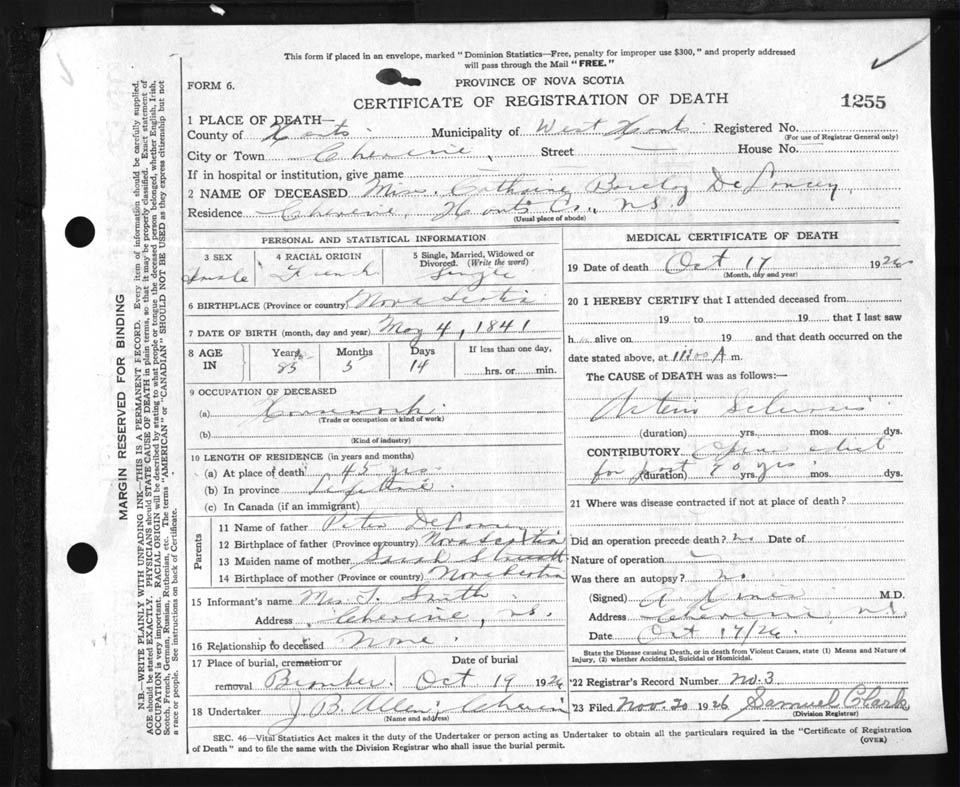 This form if placed in an envelope, marked "Dominion Statistics—Free, penalty for improper use $300," and properly addressed
will pass through the Mail "FREE."
FORM 6.
PROVINCE OF NOVA SCOTIA
CERTIFICATE OF REGISTRATION OF DEATH
1255
1 PLACE OF DEATH—
County of Hants Municipality of West Hants Registered No.
(For use of Registrar General only)
City or Town Cheverie, Street — House No. —
If in hospital or institution, give name
2 NAME OF DECEASED Miss. Catherine Barclay DeLoncey
Residence Cheverie, Hants Co., N.S.
(Usual place of abode)
PERSONAL AND STATISTICAL INFORMATION
3 SEX 4 RACIAL ORIGIN 5 Single, Married, Widowed or Divorced. (Write the word)
French Single
6 BIRTHPLACE (Province or country) Nova Scotia
7 DATE OF BIRTH (month, day and year) May 4, 1841
8 AGE IN Years Months Days If less than one day,
85 5 14 hrs. or min.
9 OCCUPATION OF DECEASED
(a) Housework
(Trade or occupation or kind of work)
(b)
(Kind of industry)
10 LENGTH OF RESIDENCE (in years and months)
(a) At place of death 45 yrs
(b) In province Lifetime
(c) In Canada (if an immigrant)
Parents
11 Name of father Peter DeLoncey
12 Birthplace of father (Province or country) Nova Scotia
13 Maiden name of mother Sarah
14 Birthplace of mother (Province or country) Nova Scotia
15 Informant's name Mrs. T. Smith
Address Cheverie, N.S.
16 Relationship to deceased None.
17 Place of burial, cremation or removal Date of burial
Oct 19 1926
18 Undertaker J. B. Allen, Cheverie
(Name and address)
MEDICAL CERTIFICATE OF DEATH
19 Date of death Oct 17 1926
(Month, day and year)
20 I HEREBY CERTIFY that I attended deceased from
19 to 19 that I last saw
h alive on 19 and that death occurred on the
date stated above, at 11.00 A m.
The CAUSE of DEATH was as follows:—
Arterio Sclerosis
(duration) yrs. mos. dys.
CONTRIBUTORY
for past yrs
(duration) yrs. mos. dys.
21 Where was disease contracted if not at place of death?
Did an operation precede death? no Date of
Nature of operation
Was there an autopsy? no
(Signed) M.D.
Address Cheverie, N.S.
Date Oct 17/26
State the Disease causing Death, or in death from Violent Causes, state (1) Means and Nature of
Injury, (2) whether Accidental, Suicidal or Homicidal.
22 Registrar's Record Number No. 3
23 Filed Nov. 20 1926 Samuel Clark
(Division Registrar)
SEC. 46—Vital Statistics Act makes it the duty of the Undertaker or person acting as Undertaker to obtain all the particulars required in the "Certificate of Registration
of Death" and to file the same with the Division Registrar who shall issue the burial permit.
(OVER)
MARGIN RESERVED FOR BINDING
N.B.—WRITE PLAINLY WITH UNFADING INK—THIS IS A PERMANENT RECORD. Every item of information should be carefully supplied.
AGE should be stated EXACTLY. PHYSICIANS should STATE CAUSE OF DEATH in plain terms, so that it may be properly classified. Exact statement of
OCCUPATION is very important. RACIAL ORIGIN will be described by stating to what people or tongue the deceased person belonged, whether English, Irish,
Scotch, French, German, Russian, Ruthenian, etc. The terms "AMERICAN" or "CANADIAN" SHOULD NOT BE USED as they express citizenship but not
a race or people. See instructions on back of Certificate.